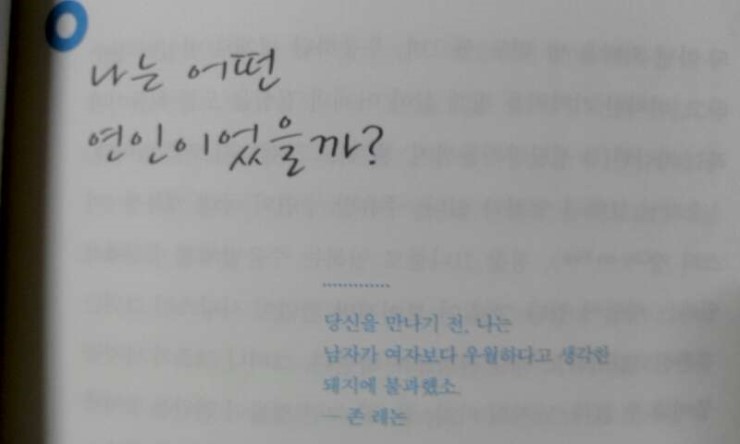 나는 어떤
연인이었을까?
당신을 만나기 전, 나는
남자가 여자보다 우월하다고 생각한
돼지에 불과했소.
— 존 레논